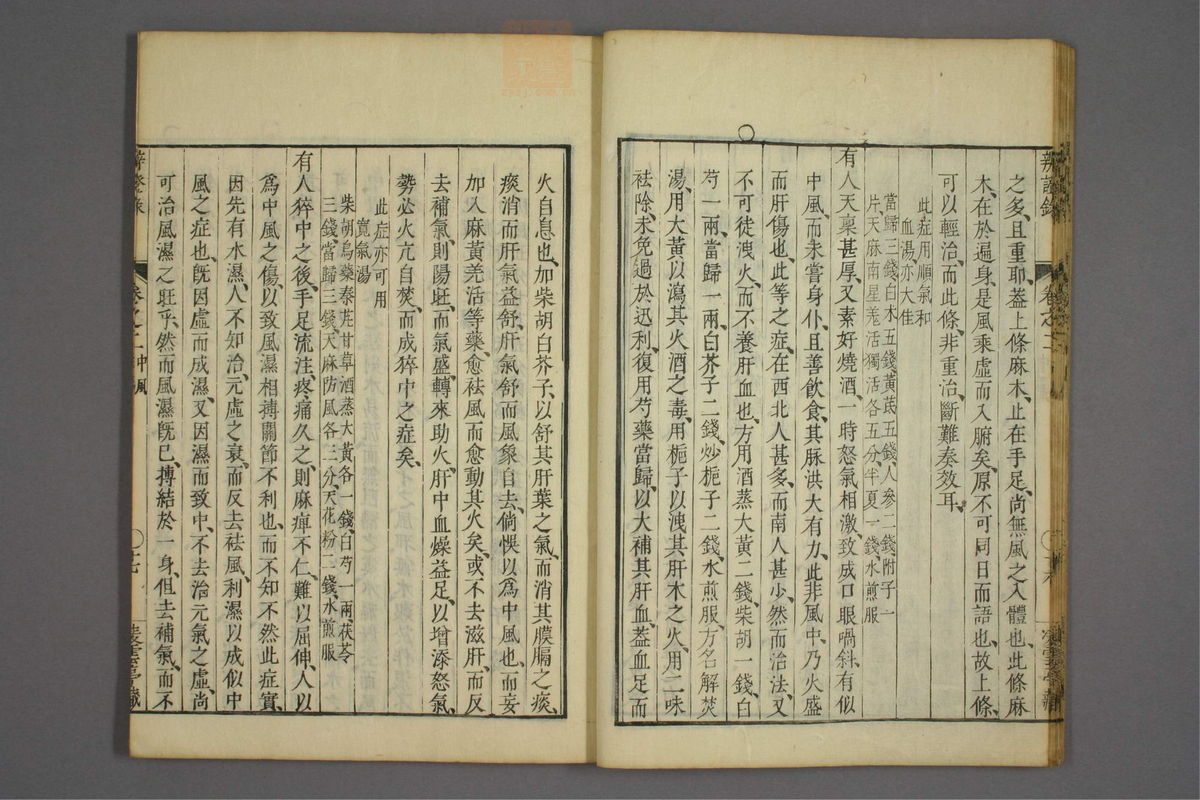 之多、且重耶、蓋上條麻木、止在手足、尚無風之入體也、此條麻
木、在於遍身、是風乘虛而入腑矣、原不可同日而語也、故上條、
可以輕治、而此條、非重治、斷難奏效耳、
此症用順氣和
血湯、亦大佳
當歸三錢白朮五錢黃芪五錢人參二錢附子一
片天麻南星羗活獨活各五分半夏一錢、水煎服
有人天稟甚厚、又素好燒酒、一時怒氣相激、致成口眼喎斜、有似
中風、而未嘗身仆、且善飲食、其脉洪大有力、此非風中、乃火盛
而肝傷也、此等之症、在西北人甚多、而南人甚少、然而治法、又
不可徒洩火、而不養肝血也、方用酒蒸大黃二錢、柴胡一錢、白
芍一兩、當歸一兩、白芥子二錢、炒梔子二錢、水煎服、方名解焚
湯、用大黃以瀉其火酒之毒、用梔子以洩其肝木之火、用二味
祛除、未免過於迅利、復用芍藥當歸、以大補其肝血、蓋血足而
火自息也、加柴胡白芥子、以舒其肝葉之氣、而消其膜膈之痰、
痰消而肝氣益舒、肝氣舒而風象自去、倘悞以為中風也、而妄
加入麻黃羗活等藥、愈祛風而愈動其火矣、或不去滋肝、而反
去補氣、則陽旺、而氣盛轉來助火、肝中血燥益足、以增添怒氣、
勢必火亢自焚、而成猝中之症矣、
此症亦可用
寬氣湯
柴胡烏藥秦艽甘草酒蒸大黃各一錢、白芍一兩、茯苓
三錢當歸三錢、天麻防風各三分、天花粉二錢、水煎服
有人猝中之後、手足流注、疼痛久之、則麻痺不仁、難以屈伸、人以
為中風之傷、以致風濕相搏、關節不利也、而不知不然、此症實
因先有水濕、人不知治、元虛之衰、而反去祛風、利濕以成似中
風之症也、既因虛而成濕、又因濕而致中、不去治元氣之虛、尚
可治風濕之旺乎、然而風濕既已、搏結於一身、但去補氣、而不